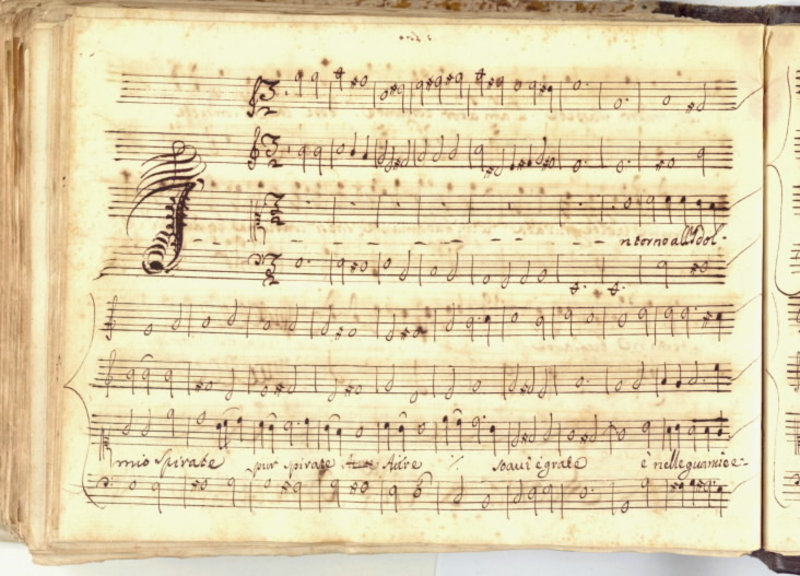 I
ntorno all'Idol.
mio spirate pur spirate Aure ٪ soavi é grate é nelle guancie e: